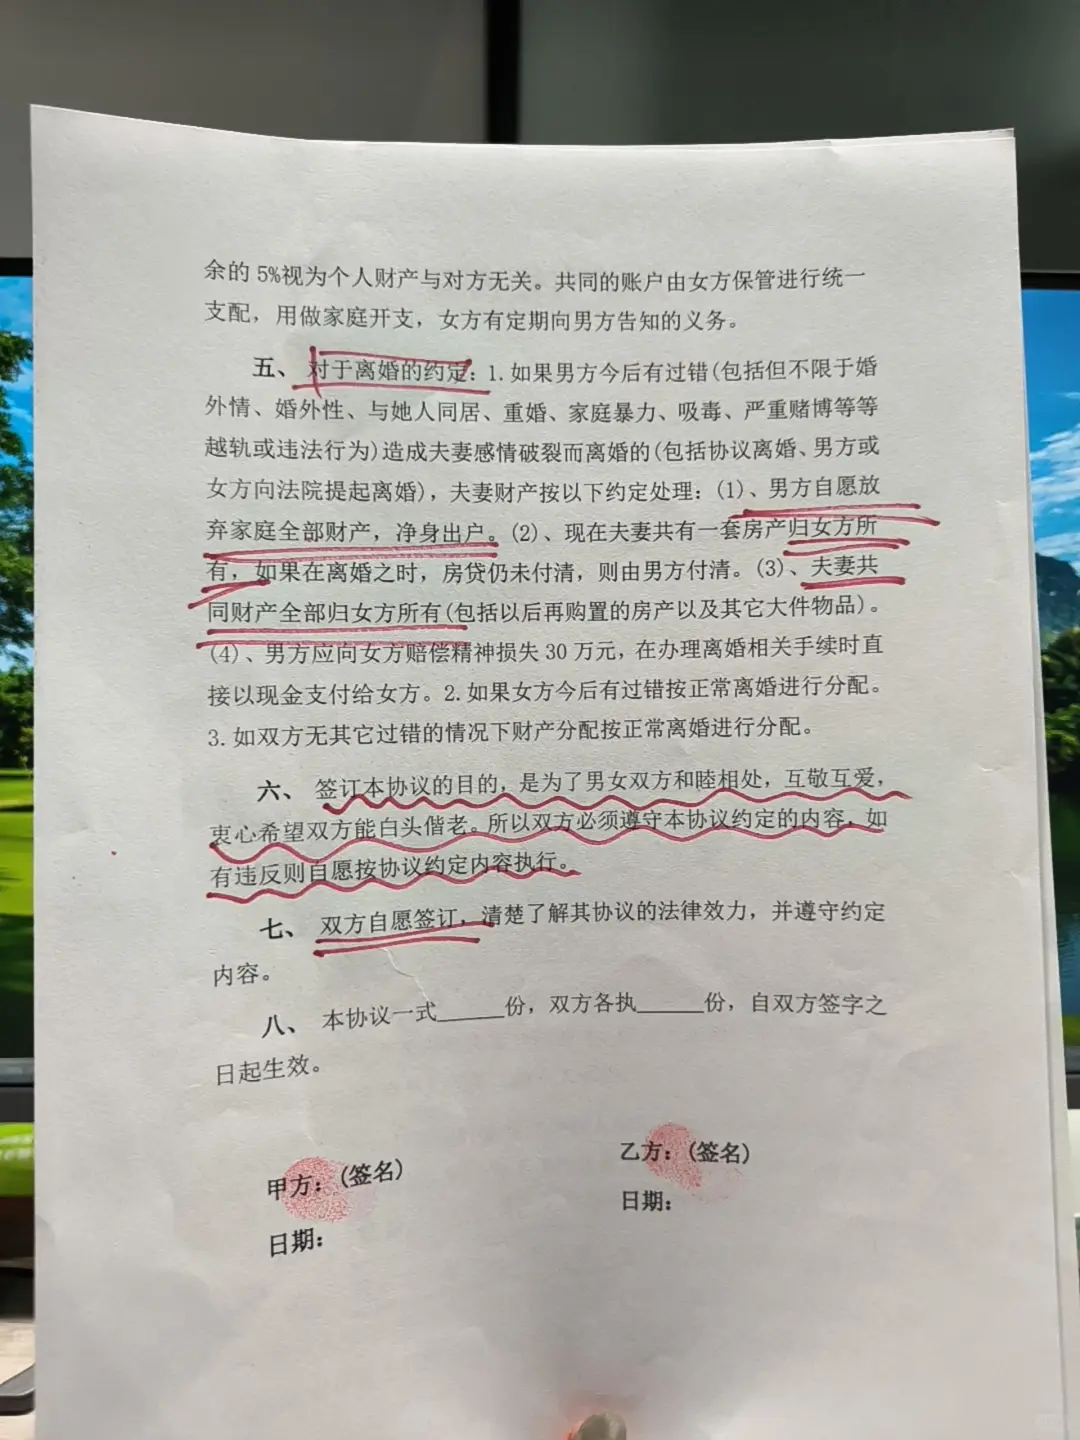 余的 5%视为个人财产与对方无关。共同的账户由女方保管进行统一
支配，用做家庭开支，女方有定期向男方告知的义务。
五、 对于离婚的约定：1.如果男方今后有过错(包括但不限于婚
外情、婚外性、与她人同居、重婚、家庭暴力、吸毒、严重赌博等等
越轨或违法行为)造成夫妻感情破裂而离婚的(包括协议离婚、男方或
女方向法院提起离婚)，夫妻财产按以下约定处理：(1)、男方自愿放
弃家庭全部财产，净身出户。(2)、现在夫妻共有一套房产归女方所
有，如果在离婚之时，房贷仍未付清，则由男方付清。(3)、夫妻共
同财产全部归女方所有(包括以后再购置的房产以及其它大件物品)。
(4)、男方应向女方赔偿精神损失 30 万元，在办理离婚相关手续时直
接以现金支付给女方。2.如果女方今后有过错按正常离婚进行分配。
3.如双方无其它过错的情况下财产分配按正常离婚进行分配。
六、 签订本协议的目的，是为了男女双方和睦相处，互敬互爱，
衷心希望双方能白头偕老。所以双方必须遵守本协议约定的内容，如
有违反则自愿按协议约定内容执行。
七、 双方自愿签订，清楚了解其协议的法律效力，并遵守约定
内容。
八、 本协议一式______份，双方各执______份，自双方签字之
日起生效。
甲方：(签名) 乙方：(签名)
日期： 日期：